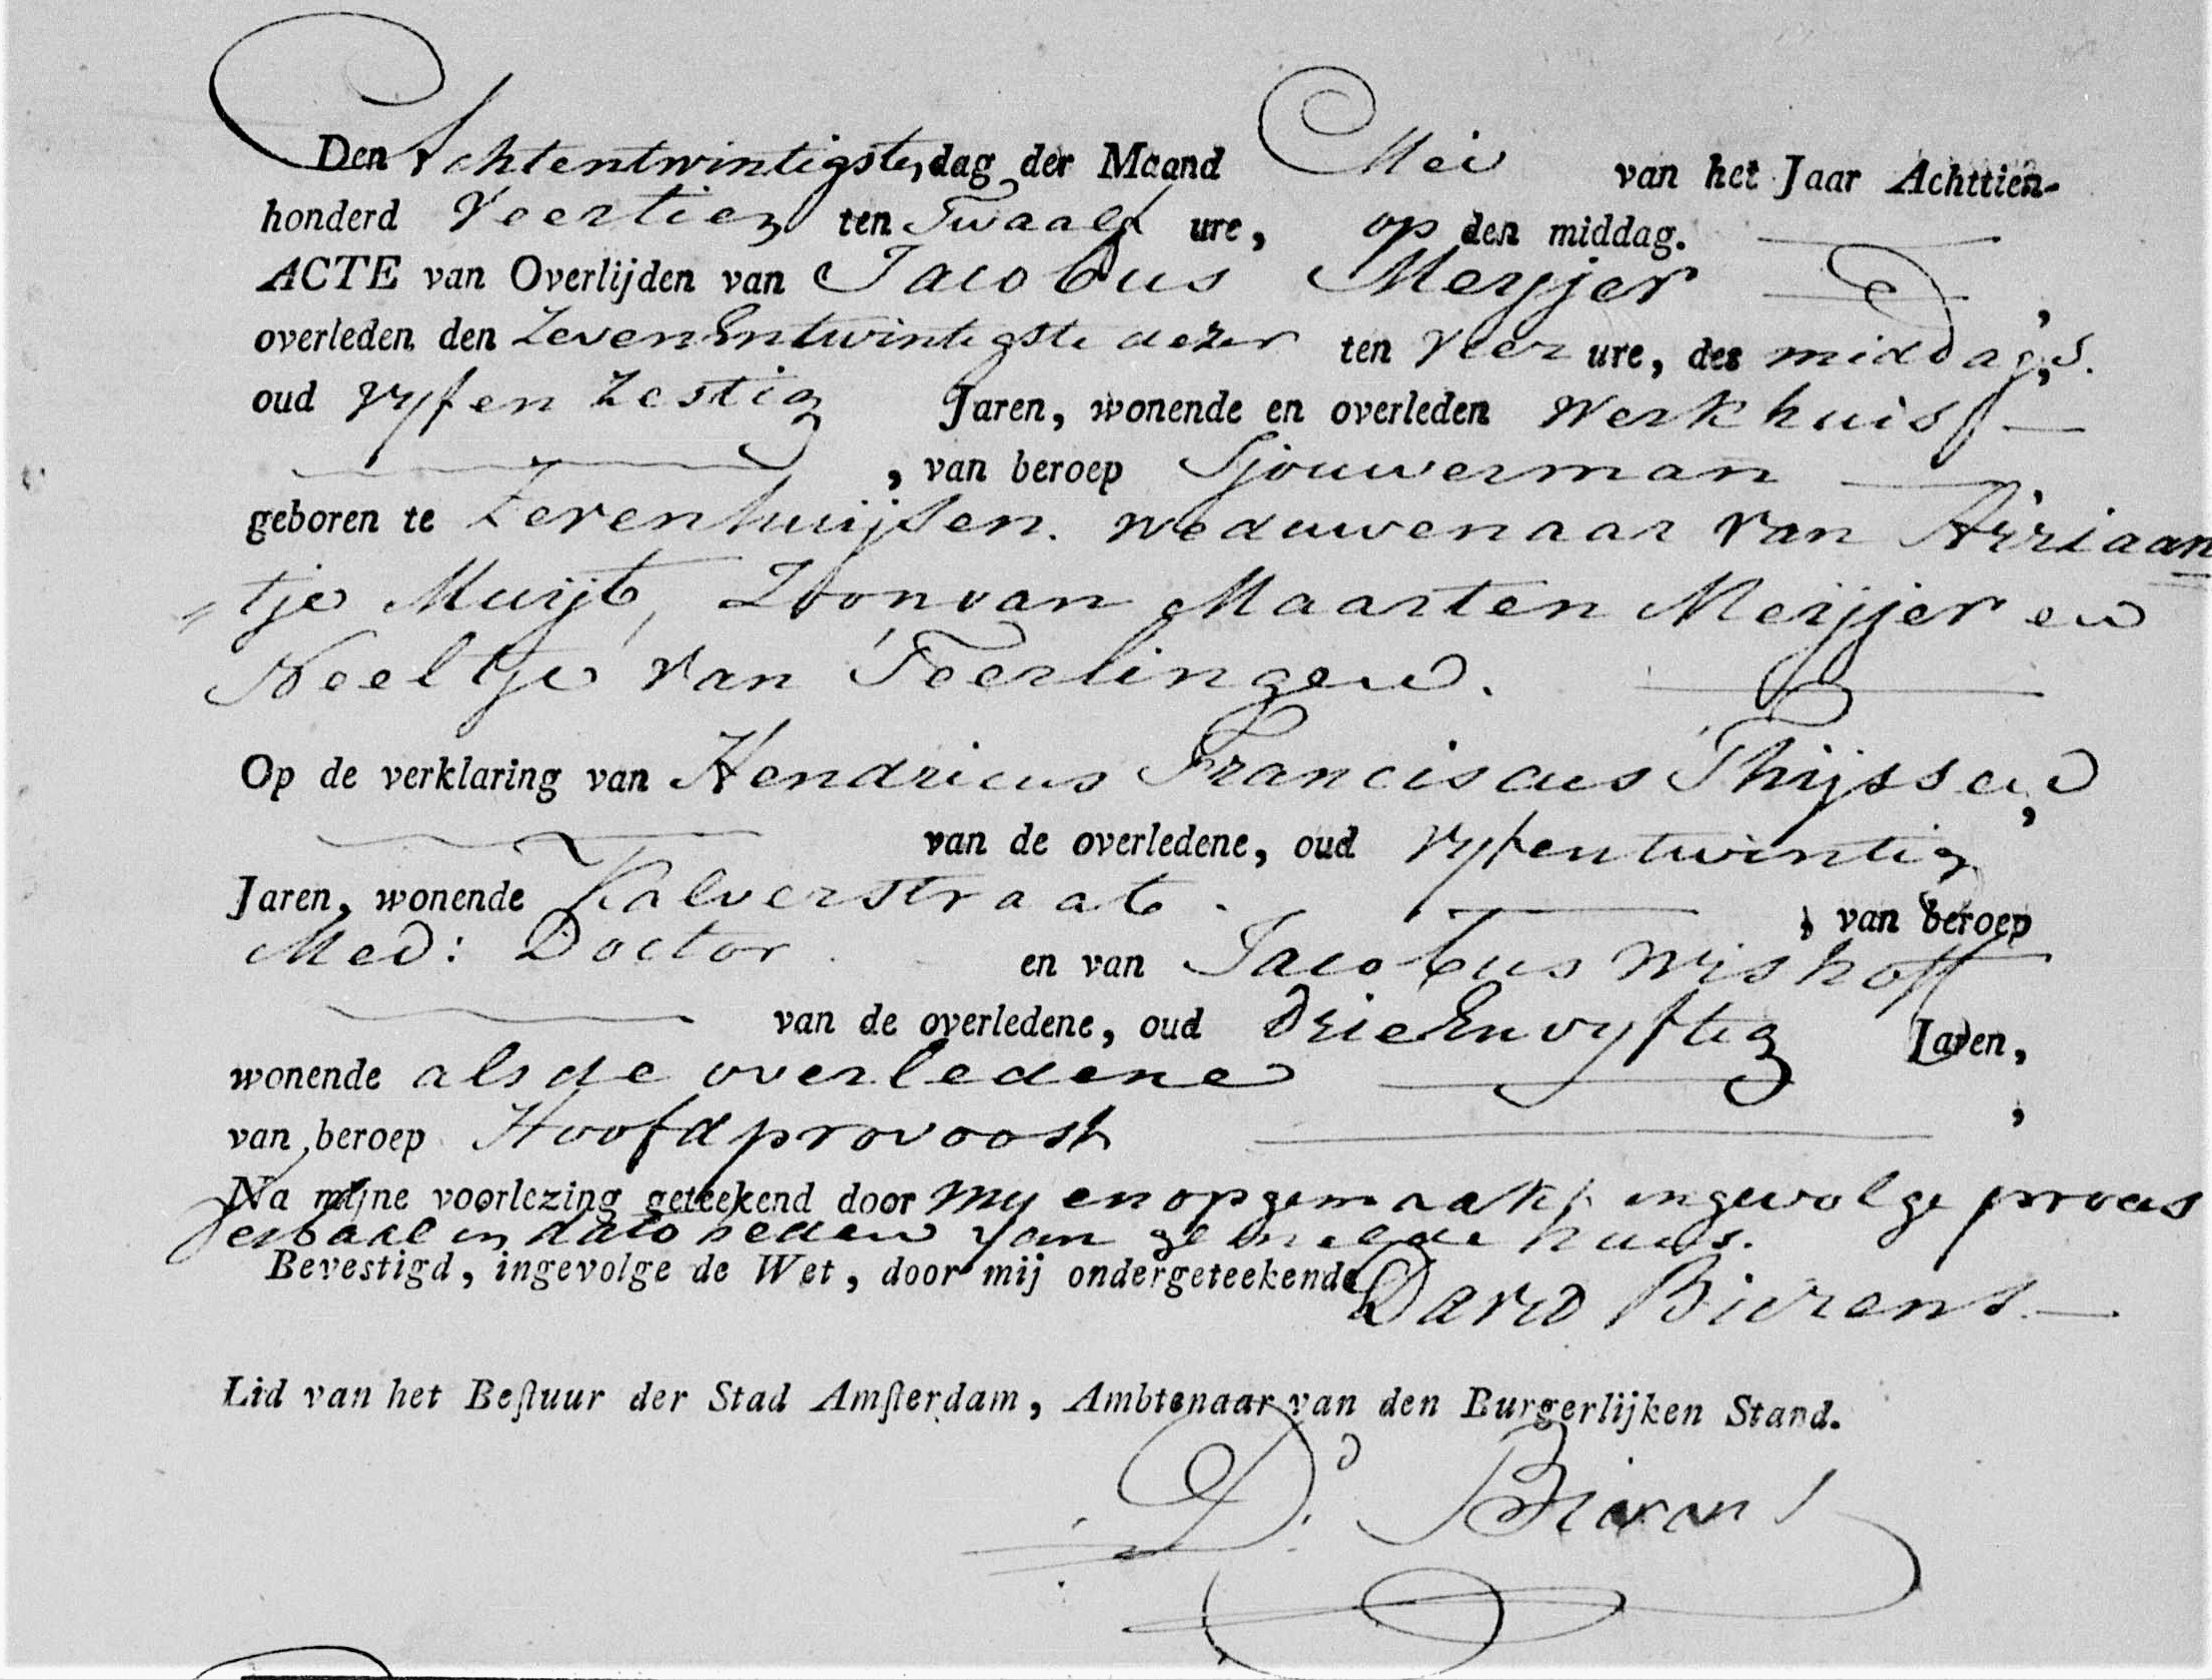 Den Achtentwintigste dag der Maand Mei van het Jaar Achttien-
honderd Veertien ten Twaalf ure, op den middag.
ACTE van Overlijden van Jacobus Meyjer,
overleden den ZevenEntwintigste dezer ten vier ure, des middags.
oud vyfenzestig Jaren, wonende en overleden Werkhuis
, van beroep Sjouwerman
geboren te Zevenhuijsen. weduwenaar van Arriaan
"tje Muijt, Zoon van Maarten Meijjer en
Neeltje van Teerlingen.
Op de verklaring van Hendricus Franciscus Thijssen,
van de overledene, oud vyfentwintig
Jaren, wonende Kalverstraat. , van beroep
Med: Doctor en van Jacobus Wishoff
van de overledene, oud drieEnvyftig Jaren,
wonende als de overledene
van beroep Hoofdprovoost ,
Na mijne voorlezing geteekend door my en opgemaakt ingevolge proces
verbaal in dato heden van gemelde huis.
Bevestigd, ingevolge de Wet, door mij ondergeteekende David Bierens
Lid van het Beſtuur der Stad Amſterdam, Ambtenaar van den Burgerlijken Stand.
Dd. Bierens